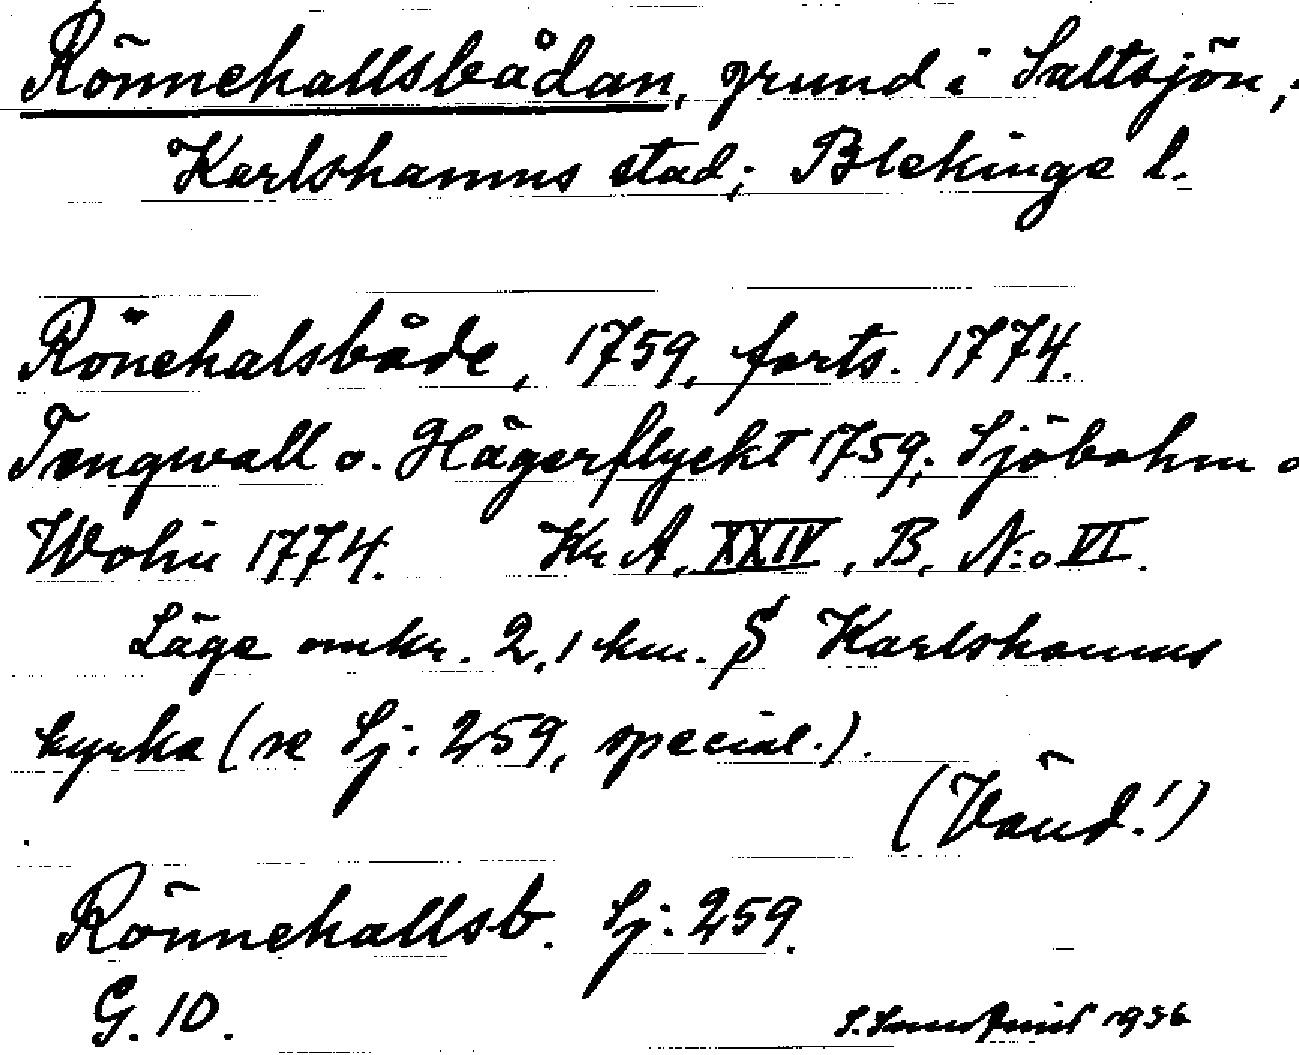 Rönnehallsbådan, grund i Saltsjön,
Karlshamns stad; Blekinge l.
Rönehalsbåde, 1759, forts. 1774.
Tengwall o. Hägerflyckt 1759; Sjöbohm o
Wohn 1774. Kr A, XXIV, B, N:o VI.
Läge omkr. 2,1 km. S Karlshamns
kyrka (se Sj. 259, special.).
(Vänd!)
Rönnehallsb. Sj: 259.
G. 10.
1936